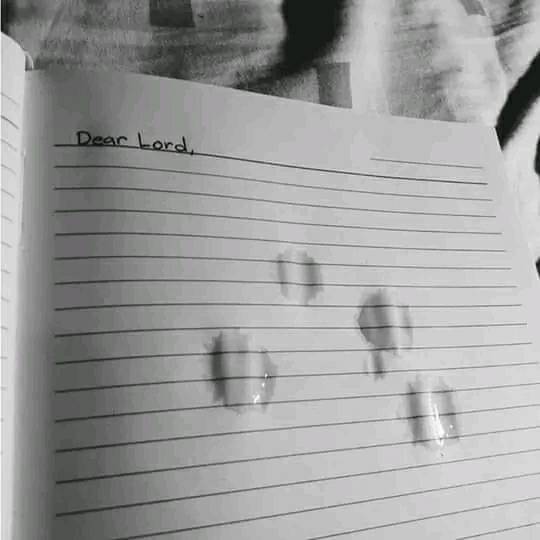 Dear Lord,